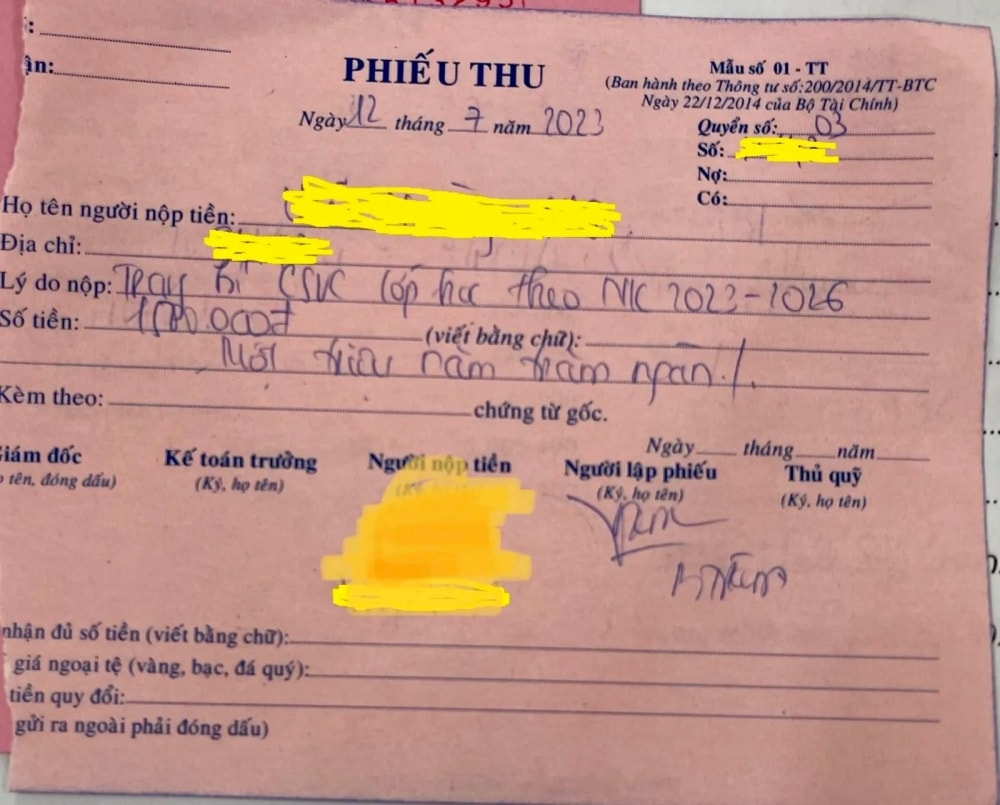 ận:
PHIẾU THU
Mẫu số 01 - TT
(Ban hành theo Thông tư số:200/2014/TT-BTC
Ngày 22/12/2014 của Bộ Tài Chính)
Ngày 12 tháng 7 năm 2023
Quyển số: 03
Số:
Nợ:
Có:
Họ tên người nộp tiền:
Địa chỉ:
Lý do nộp: Trang bị CSVC lớp học theo NK 2023-2026
Số tiền: 1500.000đ (viết bằng chữ):
Một triệu năm trăm ngàn /.
Kèm theo: chứng từ gốc.
Ngày tháng năm
Giám đốc Kế toán trưởng Người nộp tiền Người lập phiếu Thủ quỹ
tên, đóng dấu) (Ký, họ tên) (Ký, họ tên) (Ký, họ tên)
nhận đủ số tiền (viết bằng chữ):
giá ngoại tệ (vàng, bạc, đá quý):
tiền quy đổi:
gửi ra ngoài phải đóng dấu)